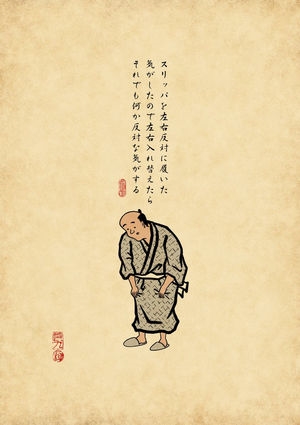 スリッパを左右反対に履いた
気がしたので左右入れ替えたら
それでも何か反対な気がする